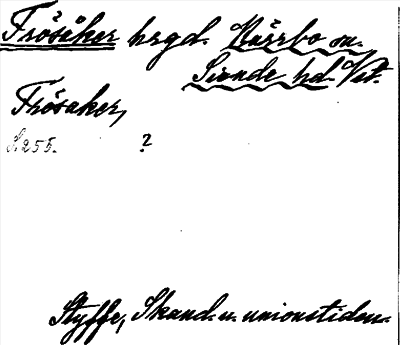 Frösåker hrgd. Kärrbo sn.
Siende hd. Vst.
Frösaker,
S. 255. ?
Styffe, Skand. u. unionstiden.